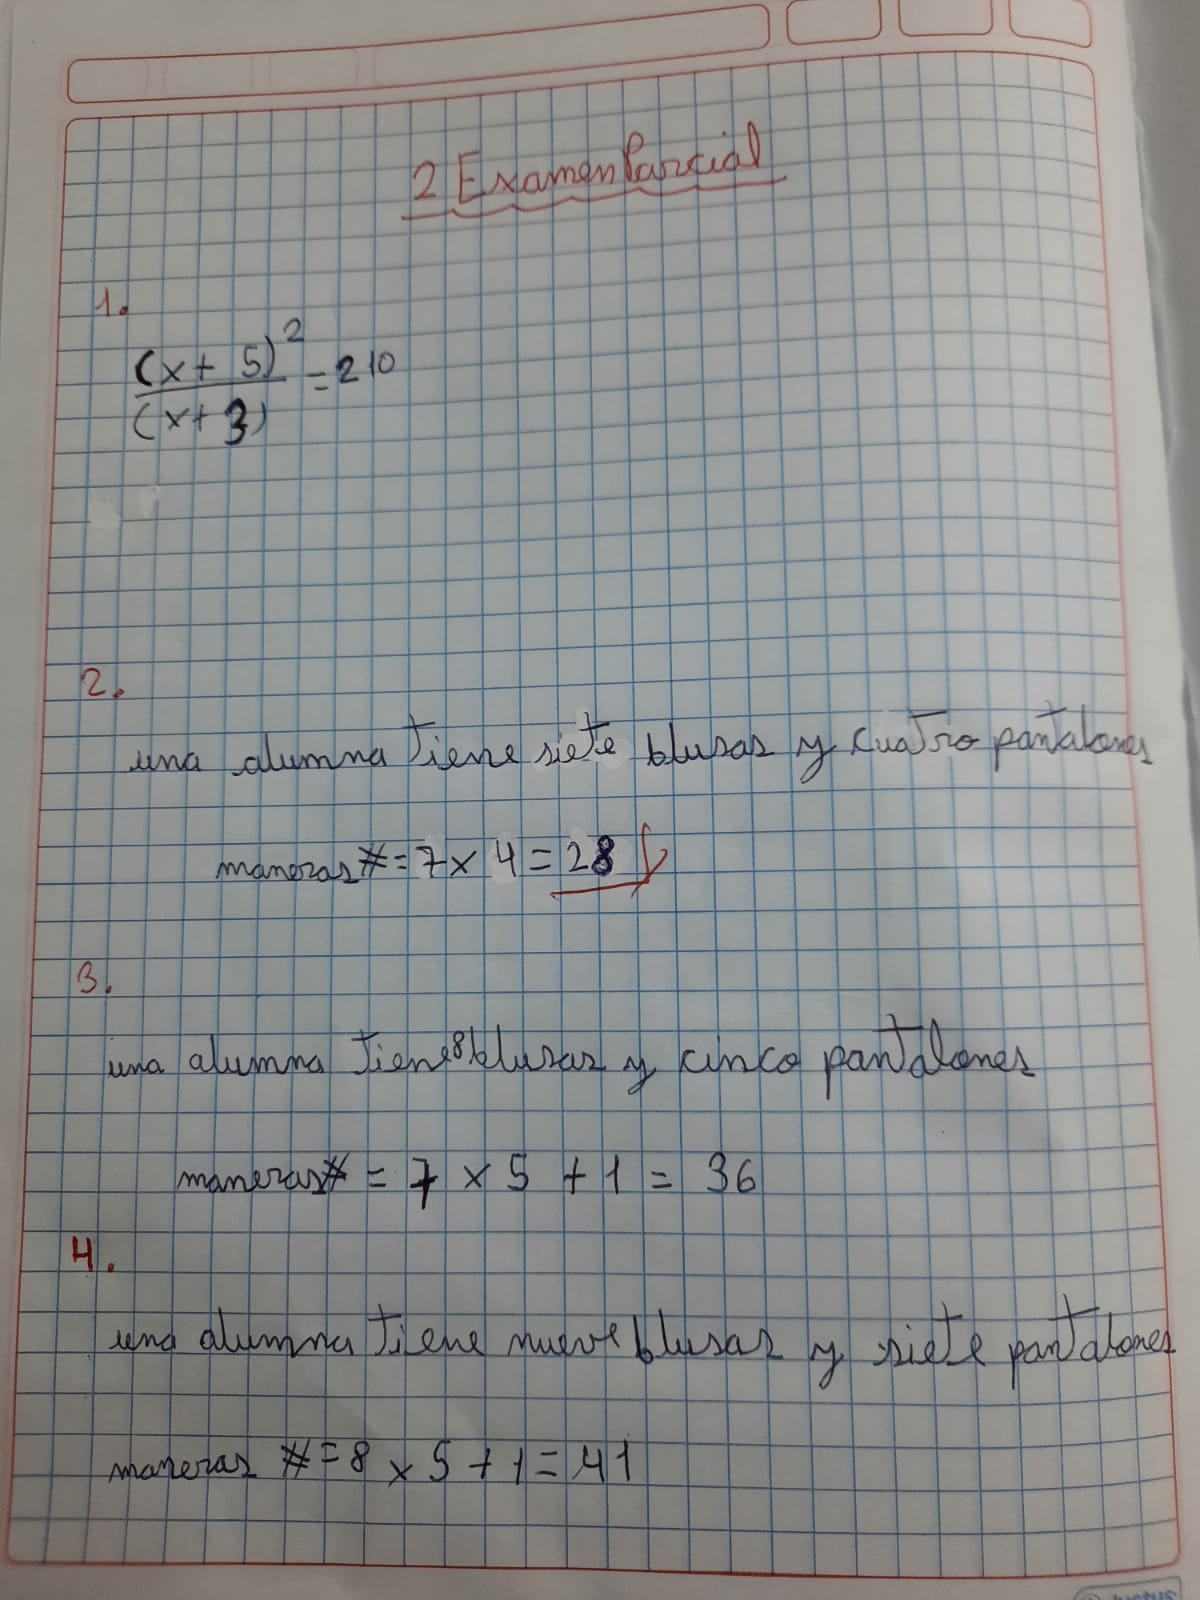 2 Examen Parcial
1.
(x + 5)²
= 210
(x + 3)
2.
una alumna tiene siete blusas y cuatro pantalones
maneras # = 7 x 4 = 28
3.
una alumna tiene 8 blusas y cinco pantalones
maneras # = 7 x 5 + 1 = 36
4.
una alumna tiene nueve blusas y siete pantalones
maneras # = 8 x 5 + 1 = 41